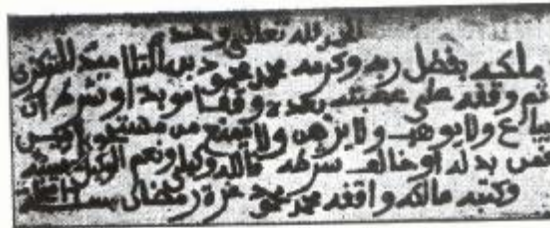 الحمد لله تعالى وحده
ملكه بفضل ربه وكرمه محمد محمود بن التلاميد التركزي
ثم وقفه على عصبته بعده وقفا مؤبدا وشرط ان
يباع ولا يوهب ولا يرهن ولا يمنع من مستحقه
فمن بدله او خالف شرطه فالله ونعم الوكيل
وكتبه مالكه واقفه محمد محمود غرة رمضان سنة